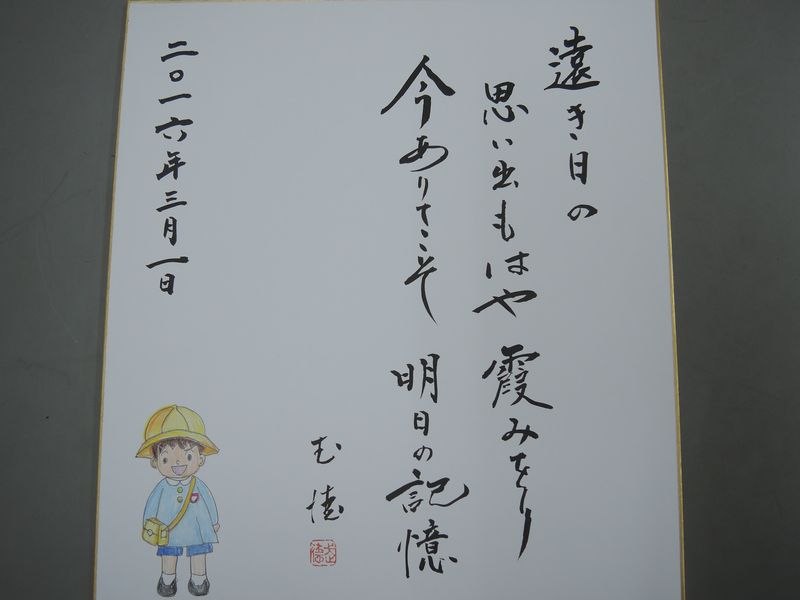 遠き日の
思い出もはや 霞みをり
今ありてこそ 明日の記憶
二〇一六年三月一日